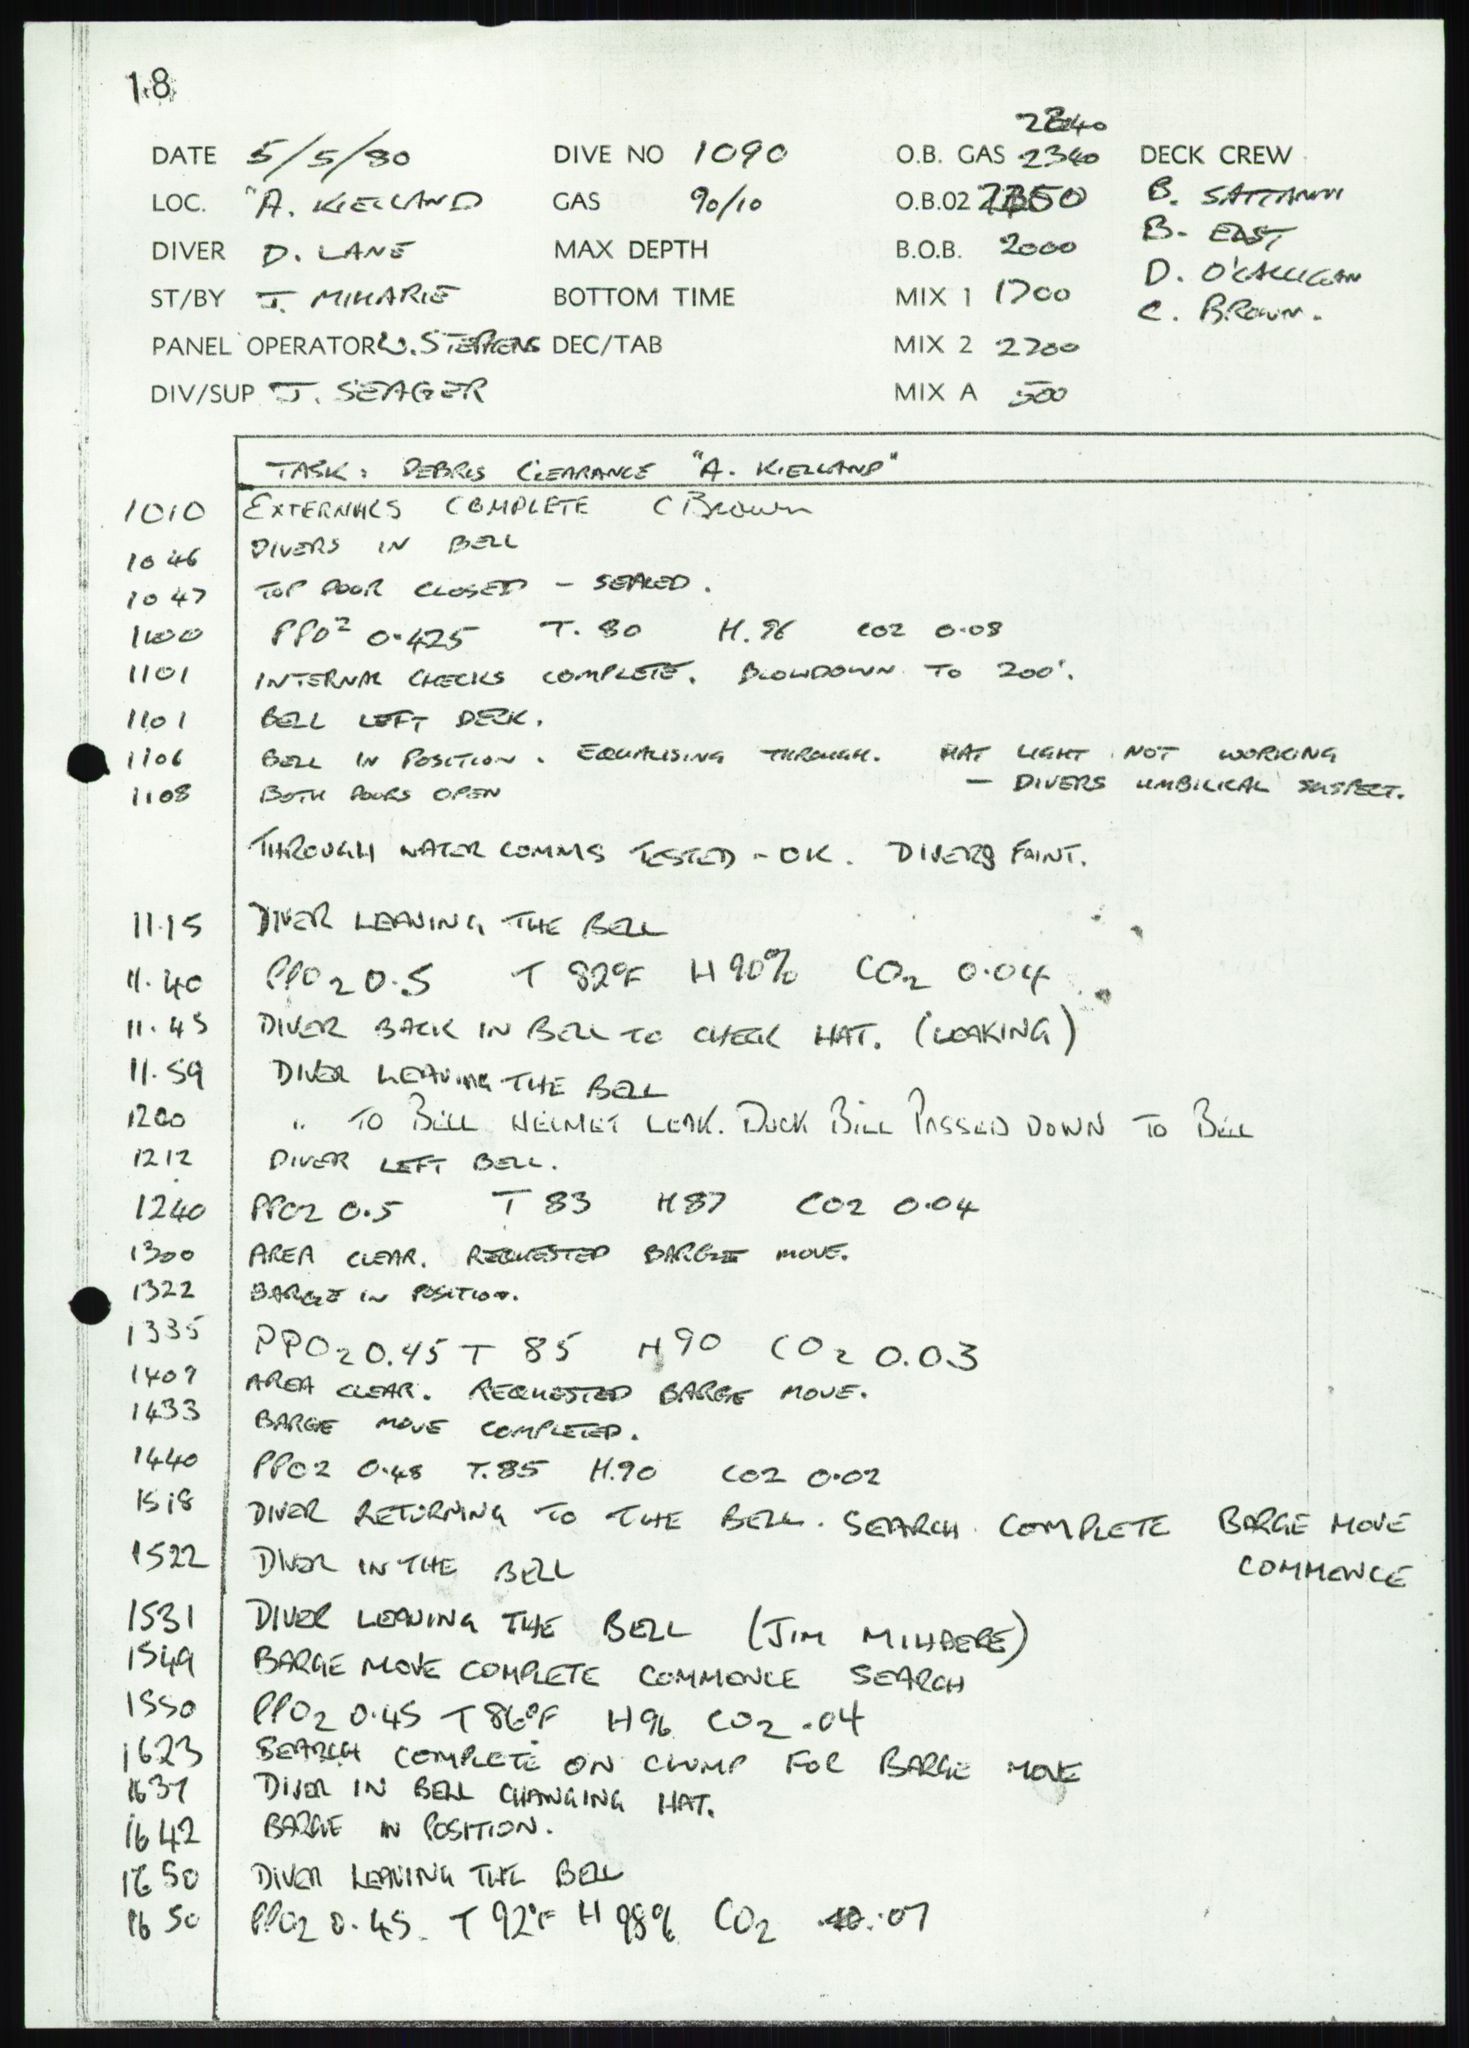 18
DATE 5/5/80 DIVE NO 1090 O.B. GAS 2340 DECK CREW
LOC. "A. KIELLAND GAS 90/10 O.B.02 B.
DIVER D. LANE MAX DEPTH B.O.B. 2000 B. EAST
ST/BY J. MIHARIE BOTTOM TIME MIX 1 1700 D. O'CALLIGAN
C. BROWN.
PANEL OPERATOR W. STEPHENS DEC/TAB MIX 2 2700
DIV/SUP J. SEAGER MIX A 500
TASK: DEBRIS CLEARANCE "A. KIELLAND"
1010 EXTERNALS COMPLETE C BROWN
1046 DIVERS IN BELL
1047 TOP DOOR CLOSED - SEALED.
1100 PPO2 0.425 T. 80 H. 96 CO2 0.08
1101 INTERNAL CHECKS COMPLETE. BLOWDOWN TO 200'.
1101 BELL LEFT DECK.
1106 BELL IN POSITION. EQUALISING THROUGH. HAT LIGHT NOT WORKING
- DIVERS UMBILICAL SUSPECT.
1108 BOTH DOORS OPEN
THROUGH WATER COMMS TESTED - OK. DIVERS FAINT.
11.15 DIVER LEAVING THE BELL
11.40 PPO2 0.5 T 82°F H 90% CO2 0.04
11.45 DIVER BACK IN BELL TO CHECK HAT. (LEAKING)
11.59 DIVER LEAVING THE BELL
1200 " TO BELL HELMET LEAK. DUCK BILL PASSED DOWN TO BELL
1212 DIVER LEFT BELL.
1240 PPO2 0.5 T 83 H 87 CO2 0.04
1300 AREA CLEAR. REQUESTED BARGE MOVE.
1322 BARGE IN POSITION.
1335 PPO2 0.45 T 85 H 90 CO2 0.03
1407 AREA CLEAR. REQUESTED BARGE MOVE.
1433 BARGE MOVE COMPLETED.
1440 PPO2 0.48 T. 85 H. 90 CO2 0.02
1518 DIVER RETURNING TO THE BELL. SEARCH COMPLETE BARGE MOVE
COMMENCE
1522 DIVER IN THE BELL
1531 DIVER LEAVING THE BELL (JIM MIHAERE)
1549 BARGE MOVE COMPLETE COMMENCE SEARCH
1550 PPO2 0.45 T 86°F H 96 CO2 .04
1623 SEARCH COMPLETE ON CLUMP FOR BARGE MOVE
1637 DIVER IN BELL CHANGING HAT.
1642 BARGE IN POSITION.
1650 DIVER LEAVING THE BELL
1650 PPO2 0.45 T 92°F H 98% CO2 .07